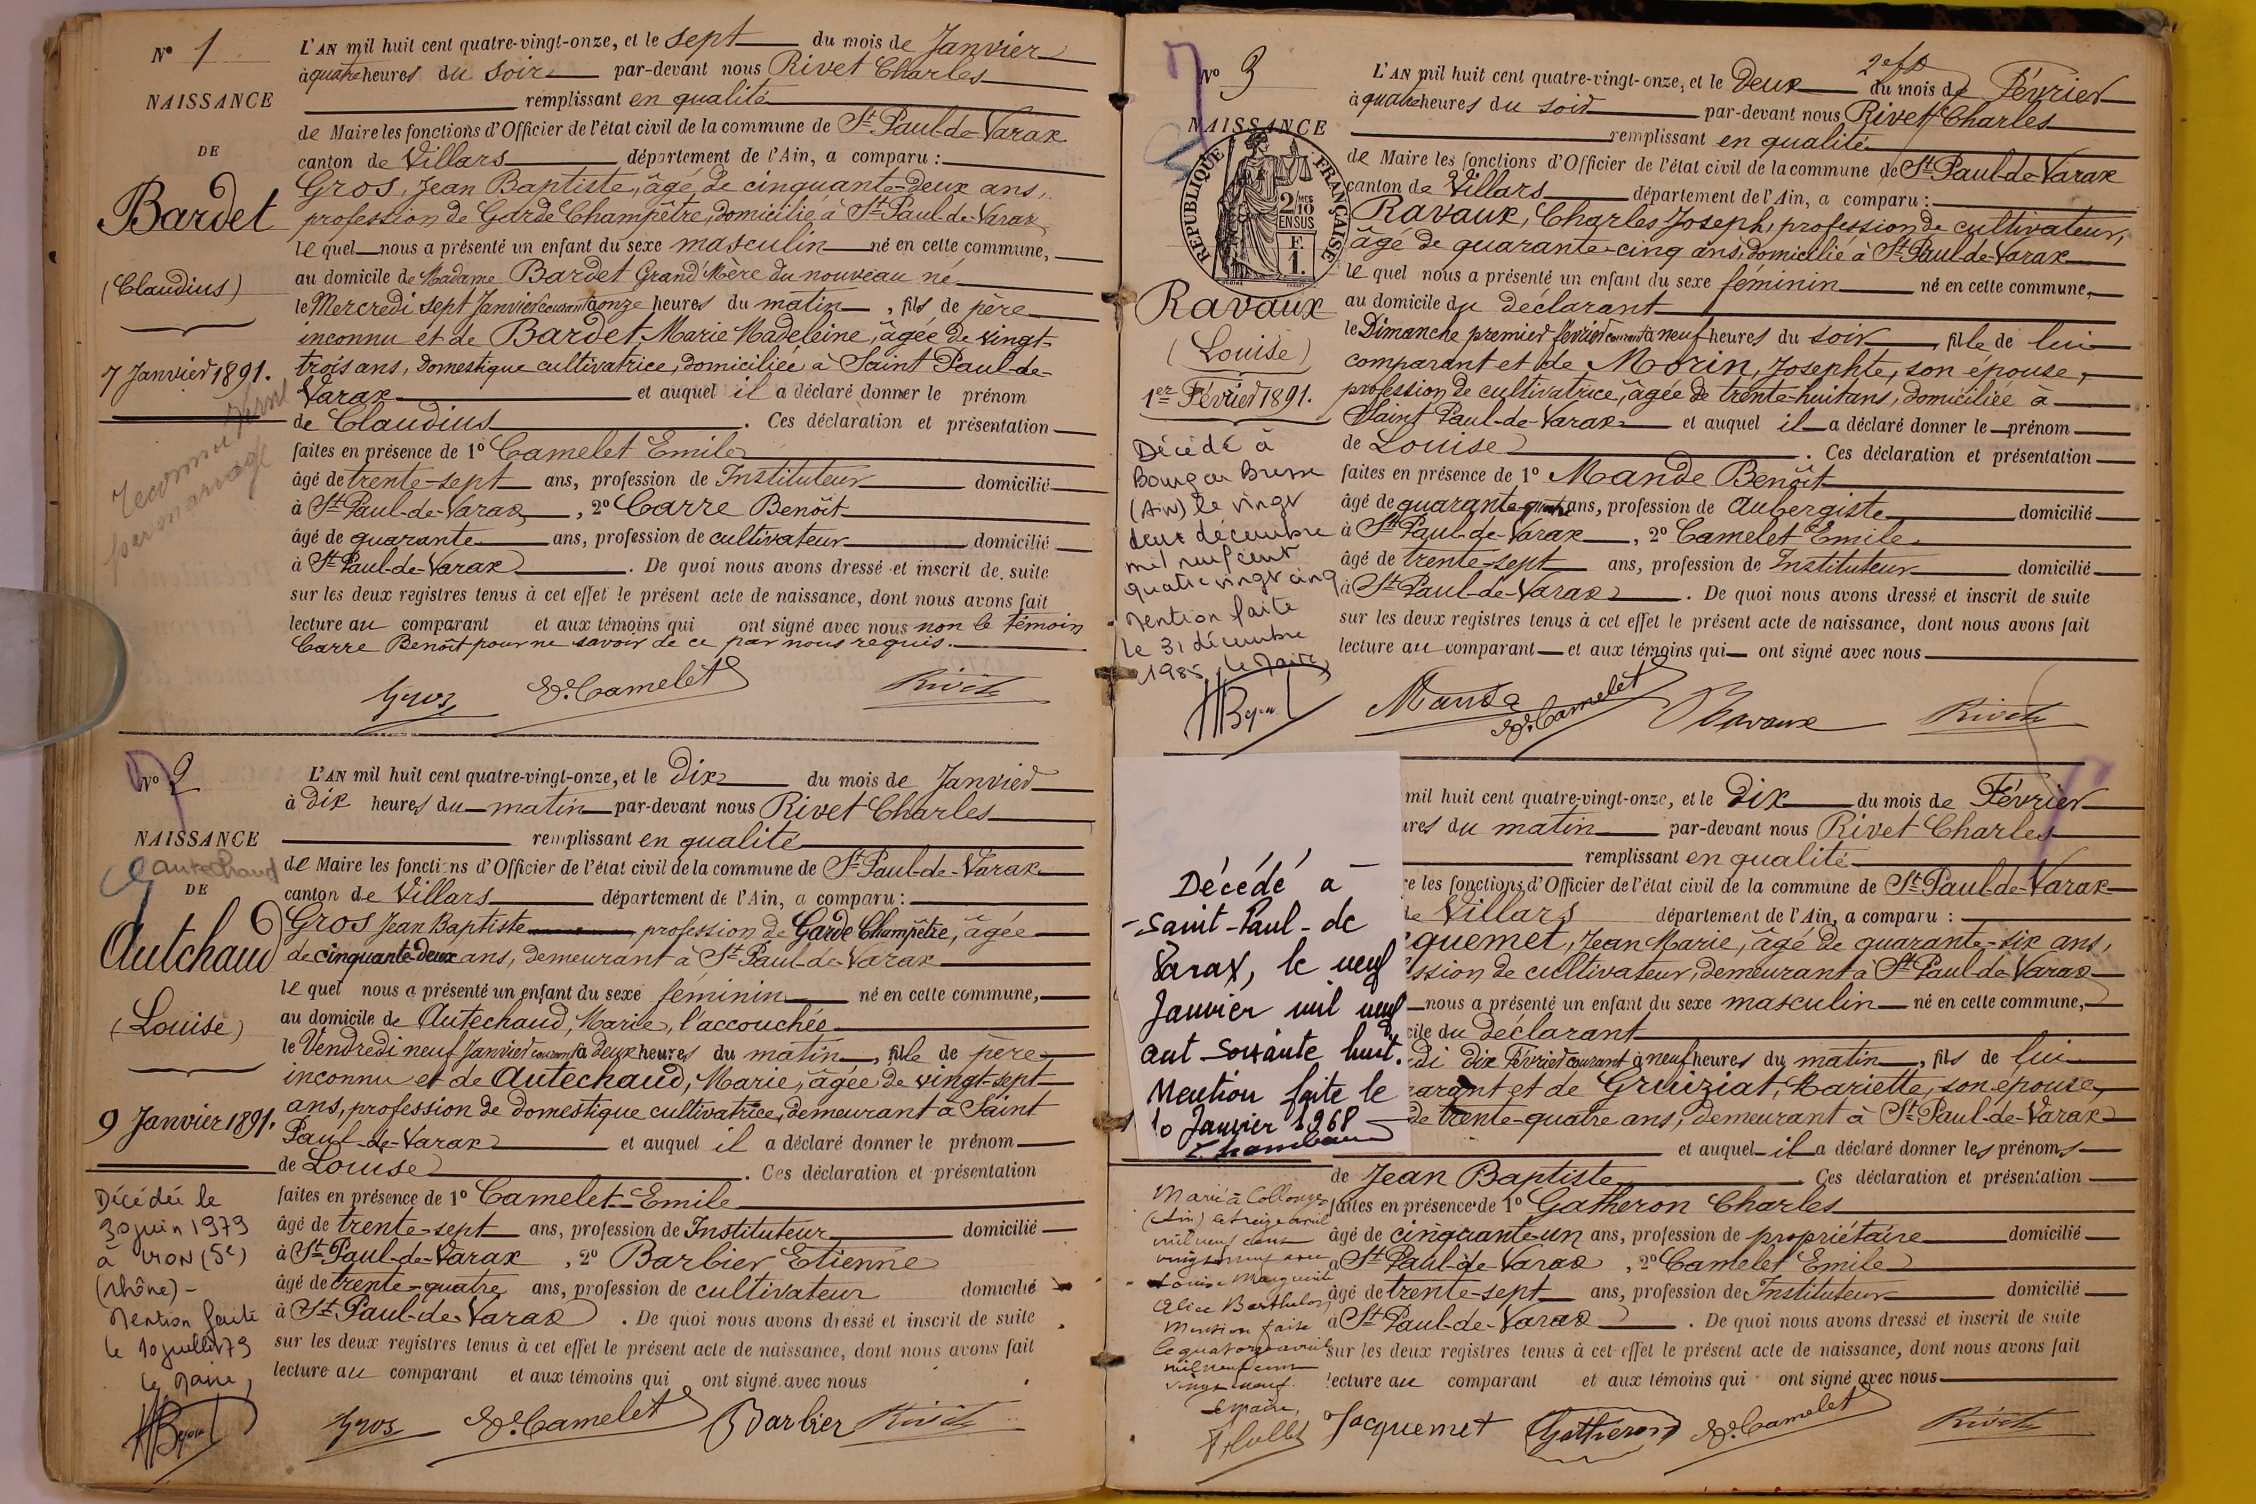 N° 1
NAISSANCE
DE
Bardet
(Claudius)
7 Janvier 1891.
reconnu
par mariage
L'AN mil huit cent quatre-vingt-onze, et le sept du mois de Janvier
à quatre heures du soir par-devant nous Rivet Charles
remplissant en qualité
de Maire les fonctions d'Officier de l'état civil de la commune de St Paul-de-Varax
canton de Villars département de l'Ain, a comparu :
Gros, Jean Baptiste, âgé de cinquante-deux ans,
profession de Garde Champêtre, domicilié à St Paul-de-Varax
le quel nous a présenté un enfant du sexe masculin né en cette commune,
au domicile de Madame Bardet Grand'Mère du nouveau né
le Mercredi sept Janvier courant à onze heures du matin, fils de père
inconnu et de Bardet Marie Madeleine, âgée de vingt-
trois ans, domestique cultivatrice, domiciliée à Saint Paul-de-
Varax et auquel il a déclaré donner le prénom
de Claudius. Ces déclaration et présentation
faites en présence de 1° Camelet Emile
âgé de trente-sept ans, profession de Instituteur domicilié
à St Paul-de-Varax, 2° Carre Benoît
âgé de quarante ans, profession de cultivateur domicilié
à St Paul-de-Varax. De quoi nous avons dressé et inscrit de suite
sur les deux registres tenus à cet effet le présent acte de naissance, dont nous avons fait
lecture au comparant et aux témoins qui ont signé avec nous non le témoin
Carre Benoît pour ne savoir de ce par nous requis.
Gros E. Camelet Rivet
N° 2
NAISSANCE
autechaud
DE
Autchaud
(Louise)
9 Janvier 1891.
Décédée le
30 juin 1979
à LYON (5e)
(Rhône) -
Mention faite
le 10 juillet 79
Le Maire,
L'AN mil huit cent quatre-vingt-onze, et le dix du mois de Janvier
à dix heures du matin par-devant nous Rivet Charles
remplissant en qualité
de Maire les fonctions d'Officier de l'état civil de la commune de St Paul-de-Varax
canton de Villars département de l'Ain, a comparu :
Gros Jean Baptiste profession de Garde Champêtre, âgée
de cinquante-deux ans, demeurant à St Paul-de-Varax
le quel nous a présenté un enfant du sexe féminin né en cette commune,
au domicile de Autechaud, Marie, l'accouchée
le Vendredi neuf Janvier courant à deux heures du matin, fille de père
inconnu et de Autechaud, Marie, âgée de vingt-sept
ans, profession de domestique cultivatrice, demeurant à Saint
Paul-de-Varax et auquel il a déclaré donner le prénom
de Louise. Ces déclaration et présentation
faites en présence de 1° Camelet Emile
âgé de trente-sept ans, profession de Instituteur domicilié
à St Paul-de-Varax, 2° Barbier Etienne
âgé de trente-quatre ans, profession de cultivateur domicilié
à St Paul-de-Varax. De quoi nous avons dressé et inscrit de suite
sur les deux registres tenus à cet effet le présent acte de naissance, dont nous avons fait
lecture au comparant et aux témoins qui ont signé avec nous
Gros E. Camelet Barbier Rivet
N° 3
NAISSANCE
RÉPUBLIQUE FRANÇAISE
2/10
EN SUS
F.
1.
Ravaux
(Louise)
1er Février 1891.
Décédé à
Bourg en Bresse
(Ain) le vingt
deux décembre
mil neuf cent
quatre vingt cinq
Mention faite
le 31 décembre
1985 Le Maire,
2e f°
L'AN mil huit cent quatre-vingt-onze, et le Deux du mois de Février
à quatre heures du soir par-devant nous Rivet Charles
remplissant en qualité
de Maire les fonctions d'Officier de l'état civil de la commune de St Paul-de-Varax
canton de Villars département de l'Ain, a comparu :
Ravaux, Charles Joseph, profession de cultivateur,
âgé de quarante-cinq ans, domicilié à St Paul-de-Varax
le quel nous a présenté un enfant du sexe féminin né en cette commune,
au domicile du déclarant
le Dimanche premier février courant à neuf heures du soir fille de lui
comparant et de Morin, Josephte, son épouse,
profession de cultivatrice, âgée de trente-huit ans, domiciliée à
Saint Paul-de-Varax et auquel il a déclaré donner le prénom
de Louise. Ces déclaration et présentation
faites en présence de 1° Mande Benoît
âgé de quarante-quatre ans, profession de Aubergiste domicilié
à St Paul-de-Varax, 2° Camelet Emile
âgé de trente-sept ans, profession de Instituteur domicilié
à St Paul-de-Varax. De quoi nous avons dressé et inscrit de suite
sur les deux registres tenus à cet effet le présent acte de naissance, dont nous avons fait
lecture au comparant et aux témoins qui ont signé avec nous
Mande E. Camelet Ravaux Rivet
Décédé à
Saint-Paul-de
Varax, le neuf
Janvier mil neuf
cent soixante huit.
Mention faite le
10 Janvier 1968
Marié à Collonges
(Ain) le treize avril
mil neuf cent
vingt neuf avec
Louise Marguerite
Alice Barthelon
Mention faite
le quatorze avril
mil neuf cent
vingt neuf.
Le maire,
mil huit cent quatre-vingt-onze, et le dix du mois de Février
ures du matin par-devant nous Rivet Charles
remplissant en qualité
re les fonctions d'Officier de l'état civil de la commune de St Paul-de-Varax
de Villars département de l'Ain, a comparu :
quemet, Jean Marie, âgé de quarante-six ans,
ession de cultivateur, demeurant à St Paul-de-Varax
nous a présenté un enfant du sexe masculin né en cette commune,
cile du déclarant
di dix Février courant à neuf heures du matin, fils de lui
arant et de Gruiziat, Mariette, son épouse,
de trente-quatre ans, demeurant à St Paul-de-Varax
et auquel il a déclaré donner les prénoms
de Jean Baptiste Ces déclaration et présentation
faites en présence de 1° Gatheron Charles
âgé de cinquante-un ans, profession de propriétaire domicilié
à St Paul-de-Varax, 2° Camelet Emile
âgé de trente-sept ans, profession de Instituteur domicilié
à St Paul-de-Varax. De quoi nous avons dressé et inscrit de suite
sur les deux registres tenus à cet effet le présent acte de naissance, dont nous avons fait
lecture au comparant et aux témoins qui ont signé avec nous
Jacquemet Gatheron E. Camelet Rivet